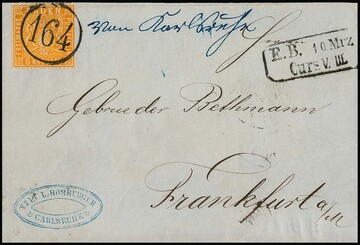 BADEN
164
von Karlsruhe
E.B. 10 Mrz
Curs V. III.
Gebrueder Bethmann
Frankfurt a/M
L. HOMBURGER
CARLSRUHE